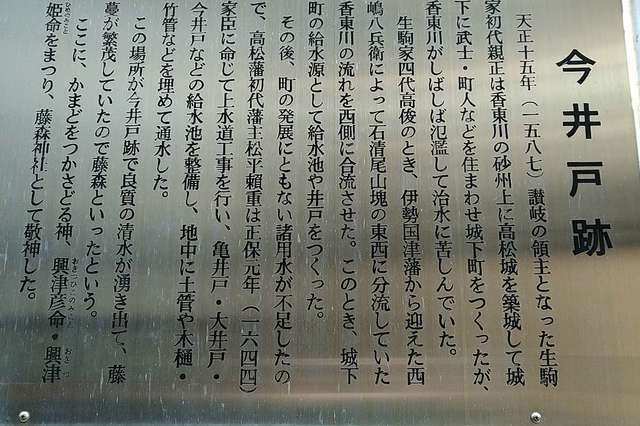 今井戸跡
天正十五年（一五八七）讃岐の領主となった生駒
家初代親正は香東川の砂州上に高松城を築城して城
下に武士・町人などを住まわせ城下町をつくったが、
香東川がしばしば氾濫して治水に苦しんでいた。
生駒家四代高俊のとき、伊勢国津藩から迎えた西
嶋八兵衛によって石清尾山塊の東西に分流していた
香東川の流れを西側に合流させた。このとき、城下
町の給水源として給水池や井戸をつくった。
その後、町の発展にともない諸用水が不足したの
で、高松藩初代藩主松平頼重は正保元年（一六四四）
家臣に命じて上水道工事を行い、亀井戸・大井戸・
今井戸などの給水池を整備し、地中に土管や木樋・
竹管などを埋めて通水した。
この場所が今井戸跡で良質の清水が湧き出て、藤
蔓が繁茂していたので藤森といったという。
ここに、かまどをつかさどる神、興津彦命・興津
おきつひこのみこと おきつ
姫命をまつり、藤森神社として敬神した。
ひめのみこと